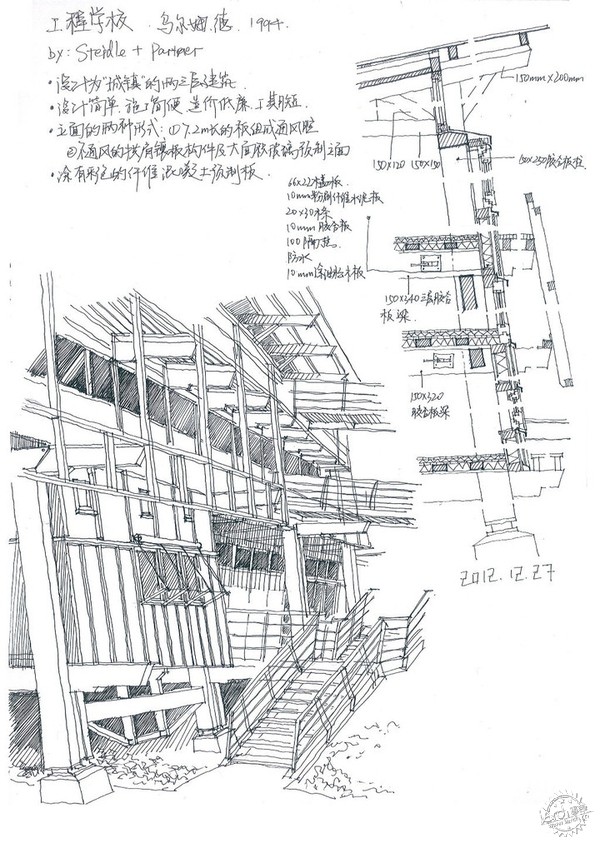 工程学校 . 乌尔姆.德. 1994.
by: Steidle + Partner
• 设计为"城镇"的两三层建筑
• 设计简单.施工简便.造价低廉.工期短.
• 立面的两种形式: ①7.2m长的板组成通风腔
②不通风的镶板构件及大面胶玻璃预制立面
• 涂有彩色的纤维混凝土预制板.
150mm×200mm
150×120
150×150
150×250胶合板柱
66×22盖板.
10mm粉刷纤维水泥板
20×30木条
10mm胶合板
100隔热.
防水
10mm涂油胶木板
150×340三层胶合
板梁.
150×320
胶合板梁
2012.12.27